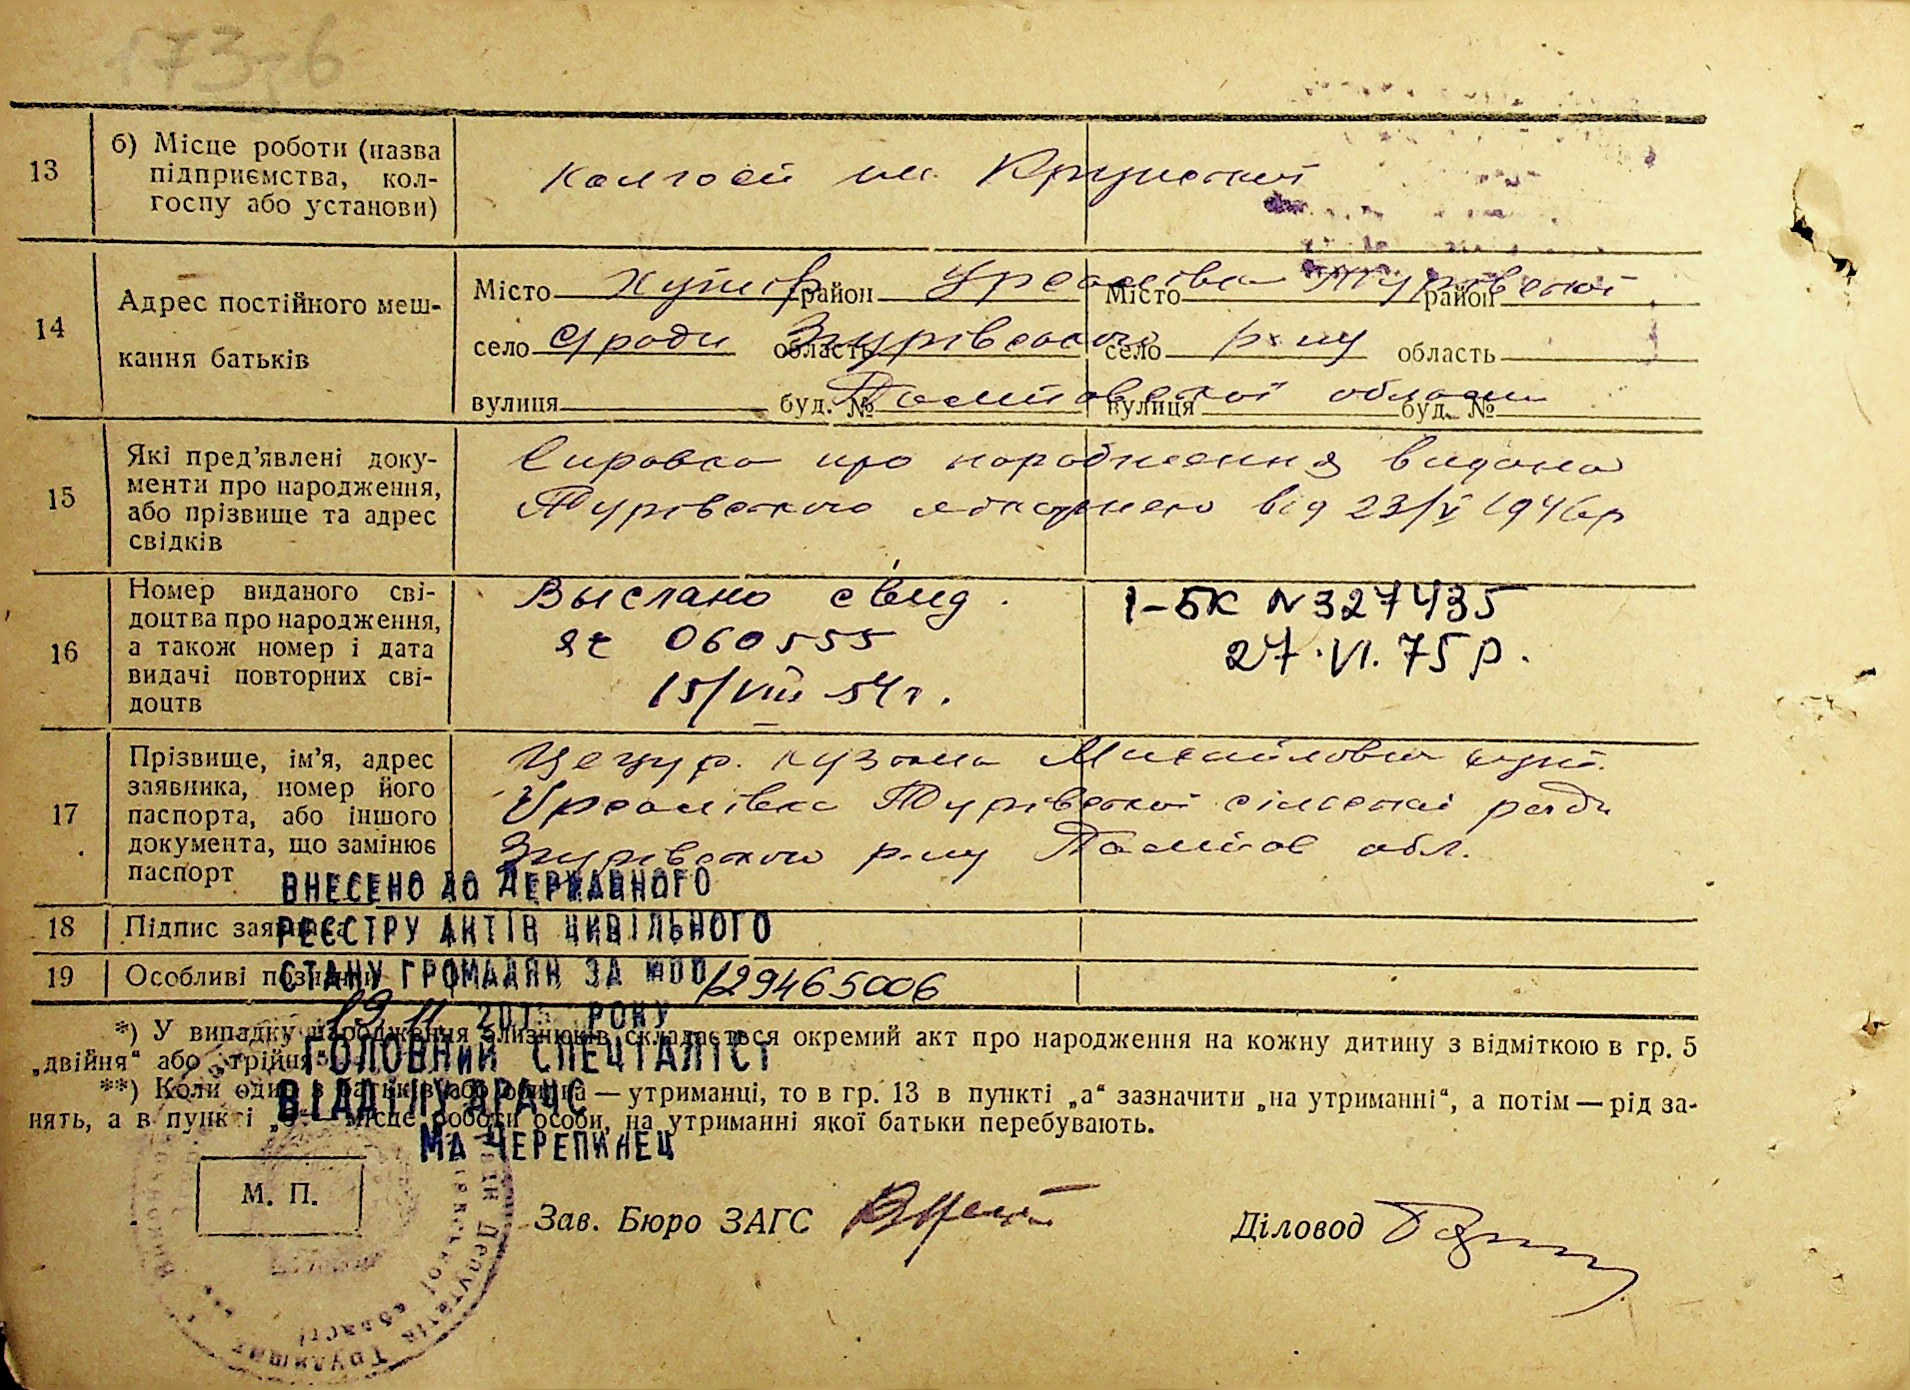 173
13
б) Місце роботи (назва
підприємства, кол-
госпу або установи)
Колгосп ім. Крупської
14
Адрес постійного меш-
кання батьків
Місто Хутір район Місто Турівської район
село С/ради область Згурівського село р-ну область
вулиця буд. № Полтавської вулиця області буд. №
15
Які пред’явлені доку-
менти про народження,
або прізвище та адрес
свідків
Справка про народження видана
Турівською від 23/V 1946р
16
Номер виданого сві-
доцтва про народження,
а також номер і дата
видачі повторних сві-
доцтв
Выслано свид.
060555
15/VIII 54 г.
І-БК № 327435
27.VI.75 р.
17
Прізвище, ім’я, адрес
заявника, номер його
паспорта, або іншого
документа, що замінює
паспорт
Михайлович хут.
Турівської сільської ради
Згурівського р-ну Полтав обл.
ВНЕСЕНО ДО ДЕРЖАВНОГО
18 Підпис заявника
РЕЄСТРУ АКТІВ ЦИВІЛЬНОГО
19 Особливі позначки
СТАНУ ГРОМАДЯН ЗА №00129465006
19.11 РОКУ
*) У випадку народження близнюків складається окремий акт про народження на кожну дитину з відміткою в гр. 5
„двійня“ або „трійня“.
ГОЛОВНИЙ СПЕЦІАЛІСТ
**) Коли один з батьків або обидва — утриманці, то в гр. 13 в пункті „а“ зазначити „на утриманні“, а потім — рід за-
ВІДДІЛУ ДРАЦС
нять, а в пункті „б“ — місце роботи особи, на утриманні якої батьки перебувають.
МА ЧЕРЕПИНЕЦ
М. П.
Зав. Бюро ЗАГС
Діловод
Депутатів Трудящих
області